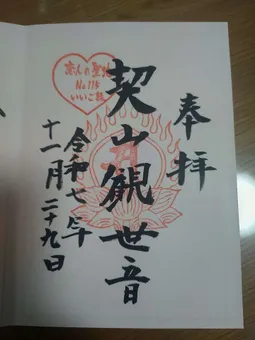 奉拝
契山観世音
令和七年
十一月二十九日
恋人の聖地
No.116
いいご縁